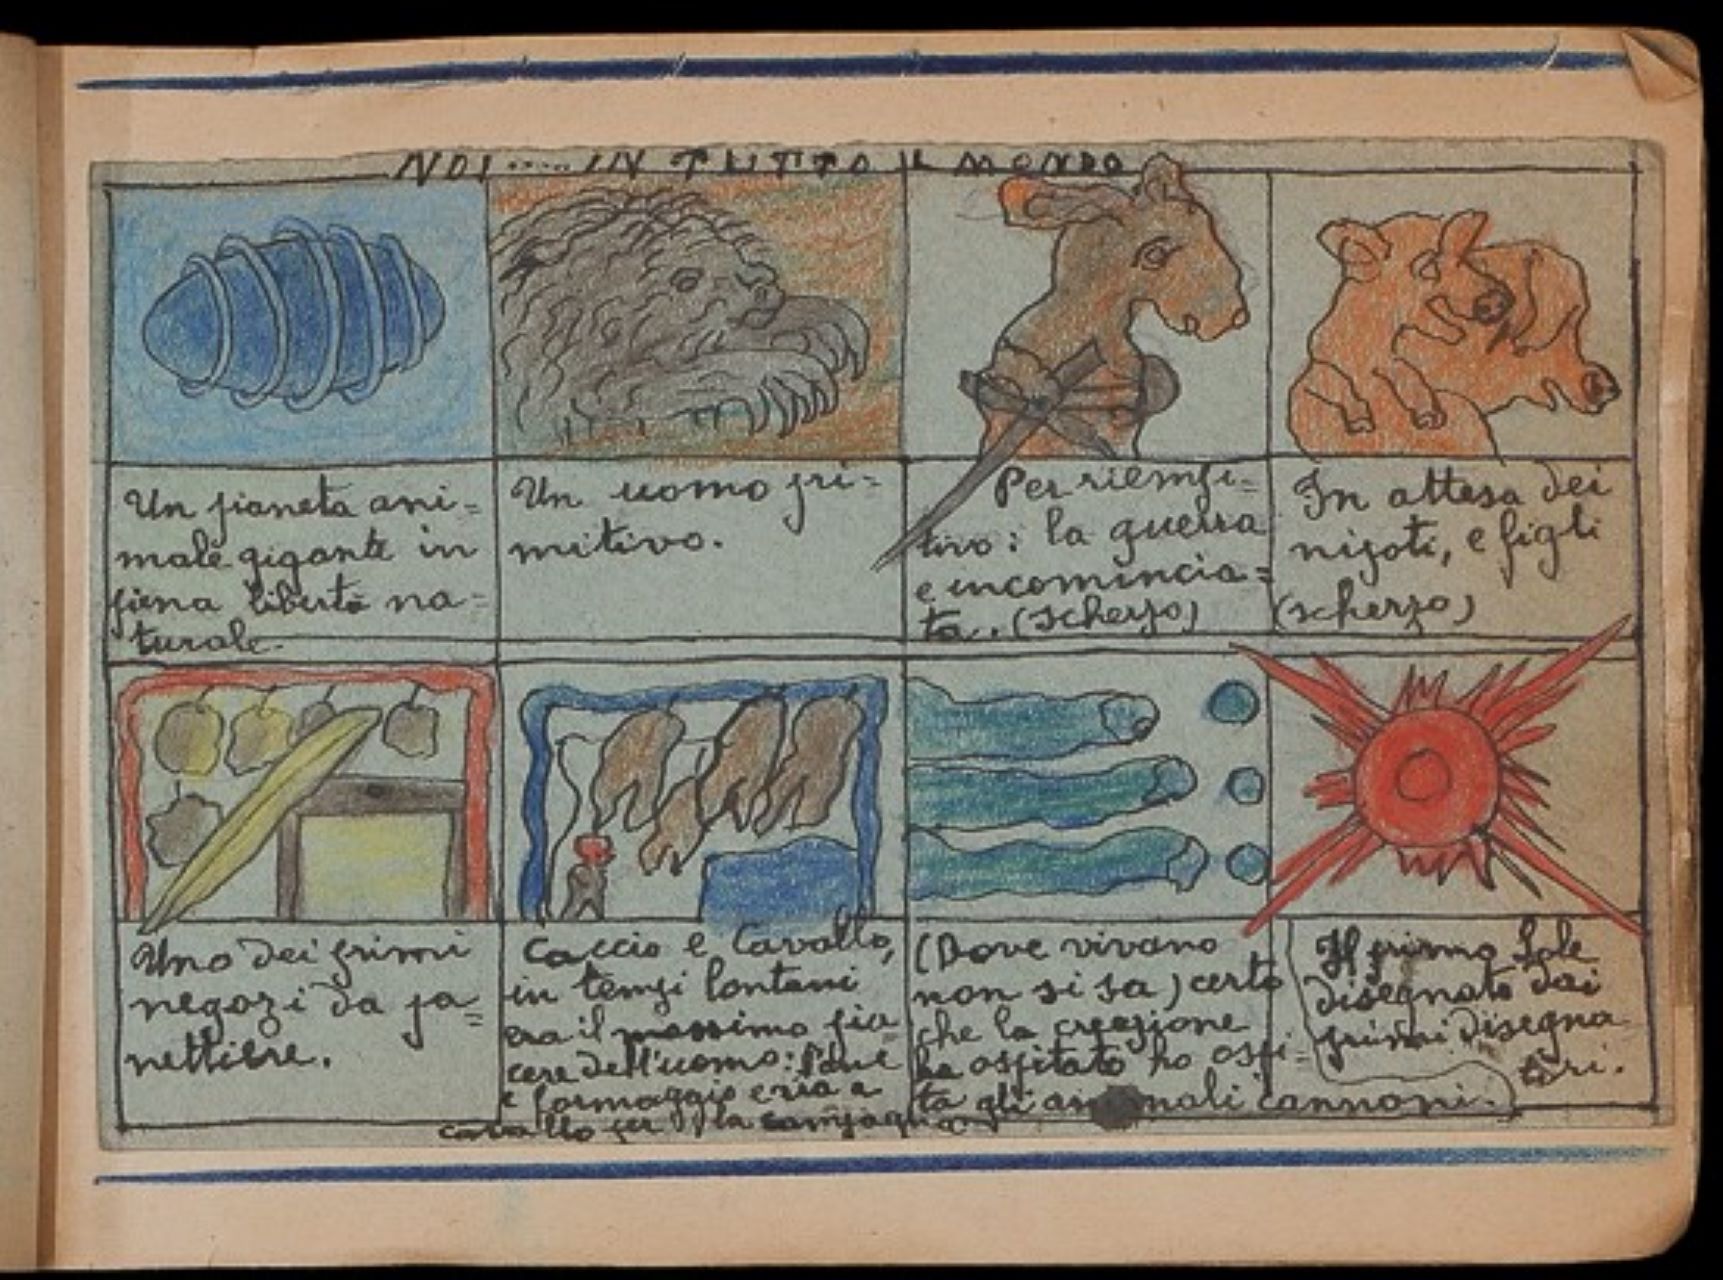 NOI..... IN TUTTO IL MONDO
Un pianeta ani=
male gigante in
piena libertà na=
turale.
Un uomo pri=
mitivo.
Per riempi=
tivo: la guerra
e incomincia=
ta. (scherzo)
In attesa dei
nipoti, e figli
(scherzo)
Uno dei primi
negozi da pa=
nettiere.
Caccio e Cavallo,
in tempi lontani
era il massimo pia
cere dell'uomo: pane
e formaggio e via a
cavallo per la campagna
(Dove vivano
non si sa) certo
che la creazione
ha ospitato ho ospi=
ta gli animali cannoni.
Il primo Sole
disegnato dai
primi disegna
tori.